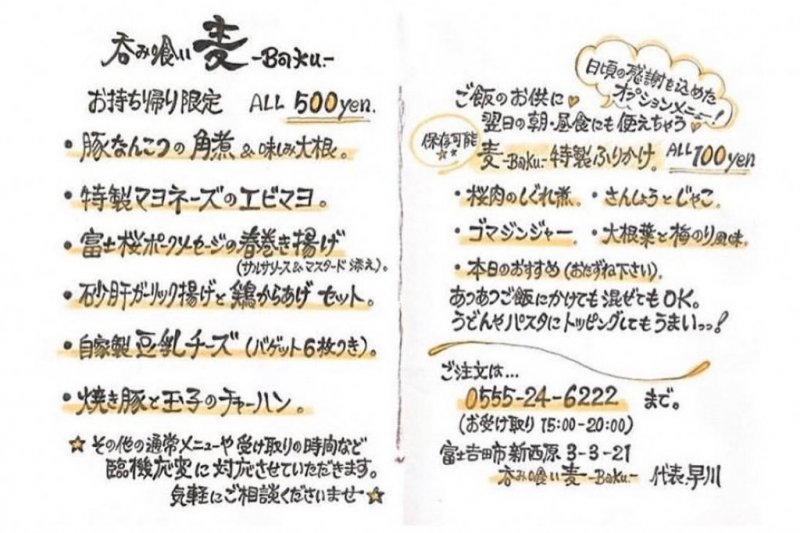 呑み喰い 麦 -Baku.-
お持ち帰り限定 ALL 500yen.
・豚なんこつの角煮 & 味しみ大根。
・特製マヨネーズのエビマヨ。
・富士桜ポークソーセージの春巻き揚げ
(サルサソース&マスタード添え)。
・砂肝ガーリック揚げと鶏からあげセット。
・自家製豆乳チーズ(バゲット6枚つき)。
・焼き豚と玉子のチャーハン。
★その他の通常メニューや受け取りの時間など
臨機応変に対応させていただきます。
気軽にご相談くださいませ★
日頃の感謝を込めた
オプションメニュー!
ご飯のお供に♥
翌日の朝・昼食にも使えちゃう♥
保存可能
★★
麦-Baku.-特製ふりかけ。ALL 100yen
・桜肉のしぐれ煮。・さんしょうとじゃこ。
・ゴマジンジャー。・大根葉と梅のり風味。
・本日のおすすめ(おたずね下さい)。
あつあつご飯にかけても混ぜてもOK。
うどんやパスタにトッピングしてもうまいっっ!
ご注文は…
0555-24-6222 まで。
(お受け取り 15:00-20:00)
富士吉田市新西原3-3-21
呑み喰い麦-Baku.- 代表.早川